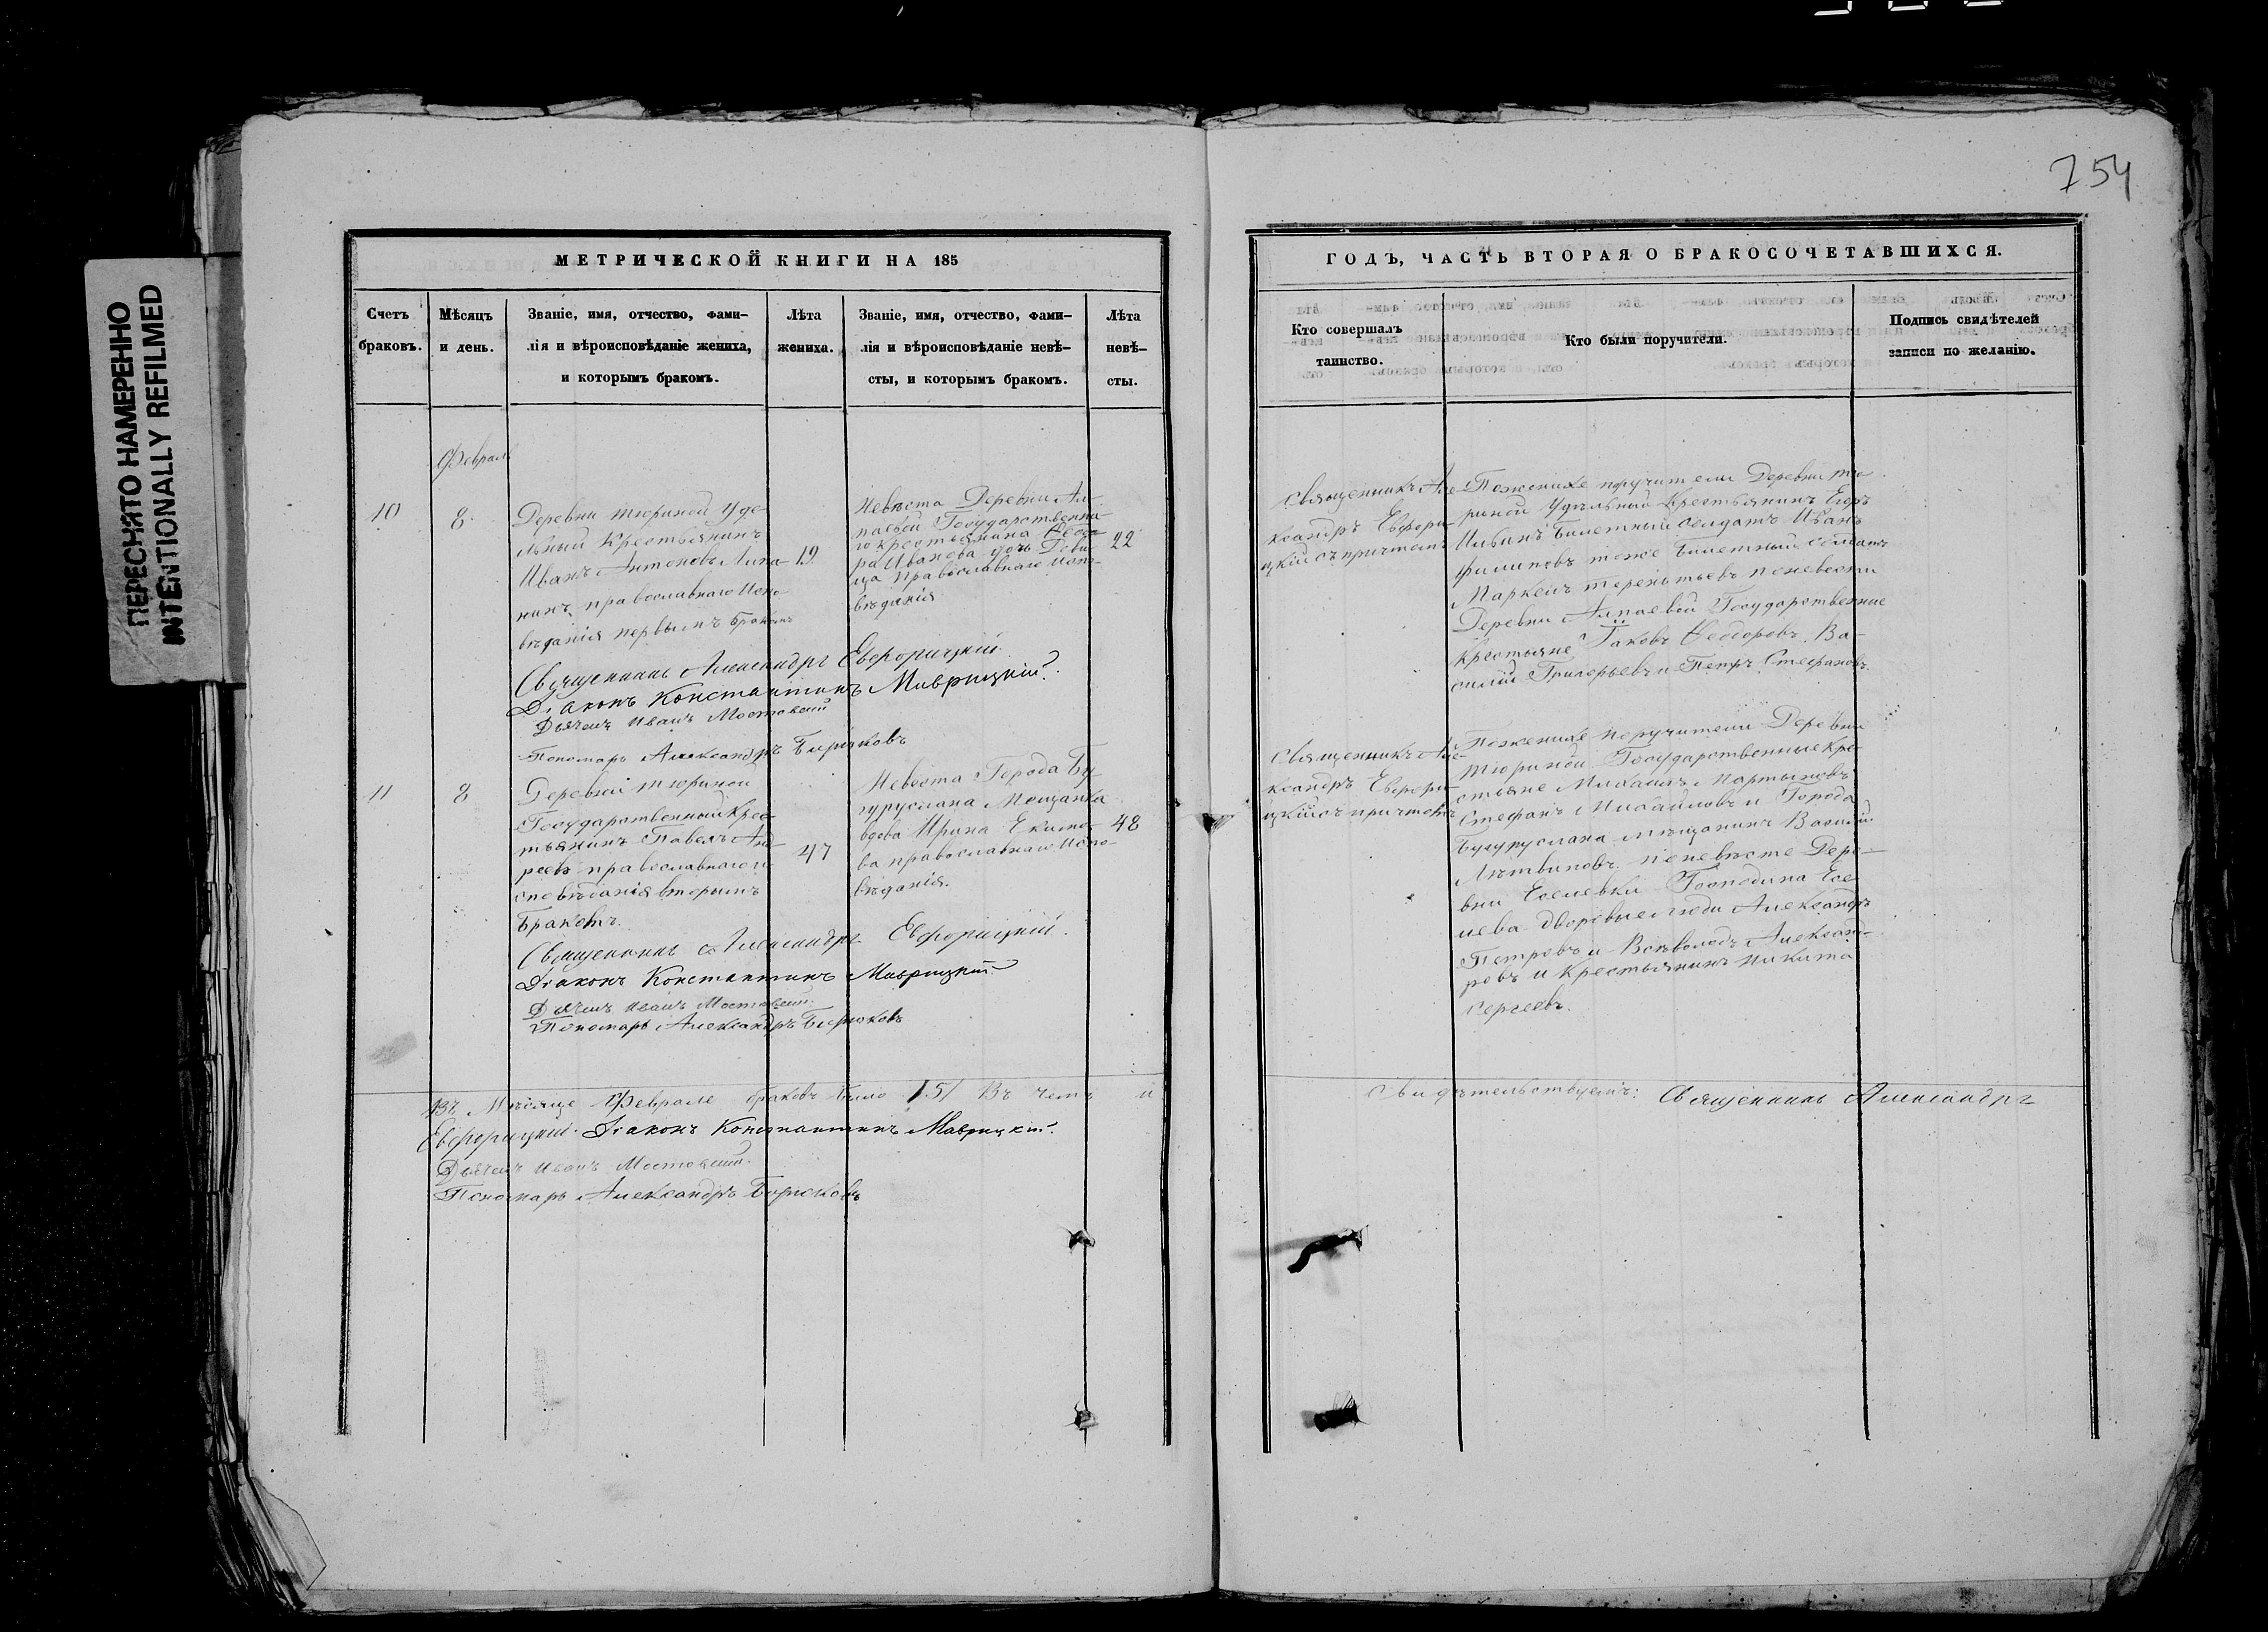 754
ПЕРЕСНЯТО НАМЕРЕННО
INTENTIONALLY REFILMED
МЕТРИЧЕСКОЙ КНИГИ НА 185
Счетъ
браковъ.
Мѣсяцъ
и день.
Званіе, имя, отчество, фами-
лія и вѣроисповѣданіе жениха,
и которымъ бракомъ.
Лѣта
жениха.
Званіе, имя, отчество, фами-
лія и вѣроисповѣданіе невѣ-
сты, и которымъ бракомъ.
Лѣта
невѣ-
сты.
Февраль
10
8
Деревни Тюриной Уде-
льный Крестьянинъ
Иванъ Антоновъ
православнаго Испо-
вѣданія первымъ бракомъ
19
Невѣста Деревни Ал-
паевой Государственна-
го крестьянина Ѳеодо-
ра Иванова дочь Деви-
ца Православнаго Испо-
вѣданія
22
Священникъ Александръ Евфорицкій
Діаконъ Константинъ Маврицкій
Дьячекъ Иванъ Мостовскій
Пономарь Александръ Бирюковъ
11
8
Деревни Тюриной
Государственный Крес-
тьянинъ Павелъ Анд-
реевъ православнаго и-
сповѣданія вторымъ
Бракомъ.
47
Невѣста Города Бу-
гуруслана Мещанка
вдова Ирина Екимо-
ва православнаго Испо-
вѣданія.
48
Священникъ Александръ Евфорицкій.
Діаконъ Константинъ Маврицкій
Дьячекъ Иванъ Мостовскій
Пономарь Александръ Бирюковъ
Въ Мѣсяце Феврале браковъ было /5/ Въ чемъ и
Евфорицкій. Діаконъ Константинъ Маврицкій.
Дьячекъ Иванъ Мостовскій.
Пономарь Александръ Бирюковъ
ГОДЪ, ЧАСТЬ ВТОРАЯ О БРАКОСОЧЕТАВШИХСЯ.
Кто совершалъ
таинство.
Кто были поручители.
Подпись свидѣтелей
записи по желанію.
Священникъ Але-
ксандръ Евфори-
цкій съ причтомъ
По женихе поручители Деревни Тю-
риной Удѣльный Крестьянинъ Егоръ
Ильинъ Билетный солдатъ Иванъ
Филиповъ тоже Билетный солдатъ
Маркелъ Терентьевъ по невѣсти
Деревни Алпаевой Государственные
Крестьяне Іаковъ Ѳеодоровъ Ва-
силій Григорьевъ и Петръ Стефановъ.
Священникъ Але-
ксандръ Евфори-
цкій съ причтомъ
По женихе поручители Деревни
Тюриной Государственные Кре-
стьяне Михаилъ Мартыновъ
Стефанъ Михайловъ и Города
Бугуруслана мѣщанинъ Василій
Литвиновъ, по невѣсте Дере-
вни Есиевки Господина
дворовые люди Александръ
Петровъ и Всѣволодъ Александ-
ровъ и Крестьянинъ Никита
Сергеевъ.
Свидѣтельствуемъ: Священникъ Александръ